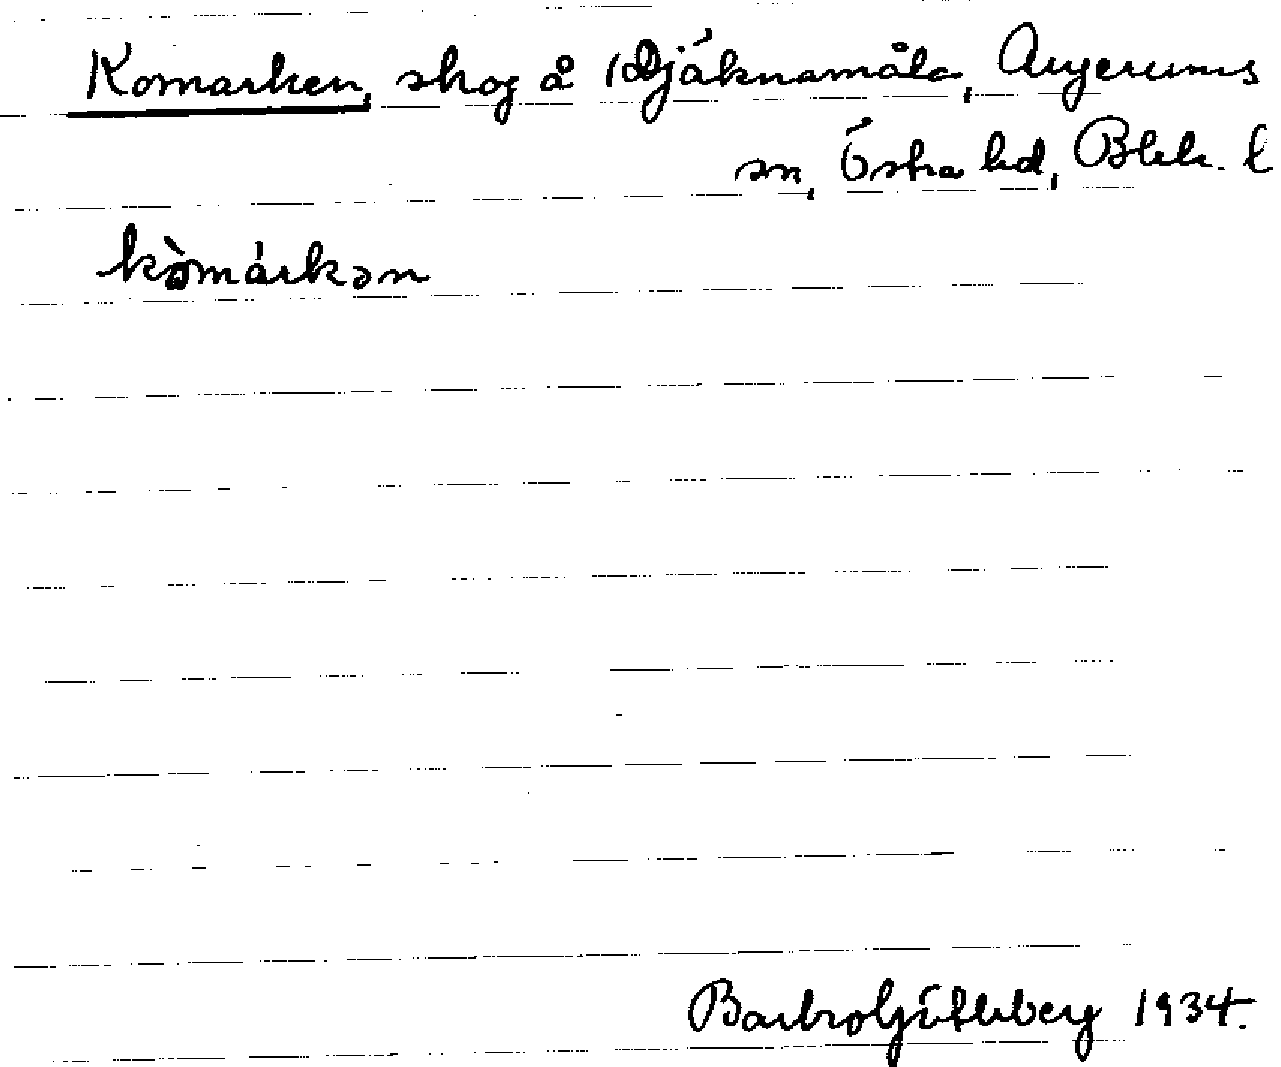 Komarken, skog å Djäknamåla, Augerums
sn, Östra hd, Blek. l
kòmárkən
Barbro 1934.